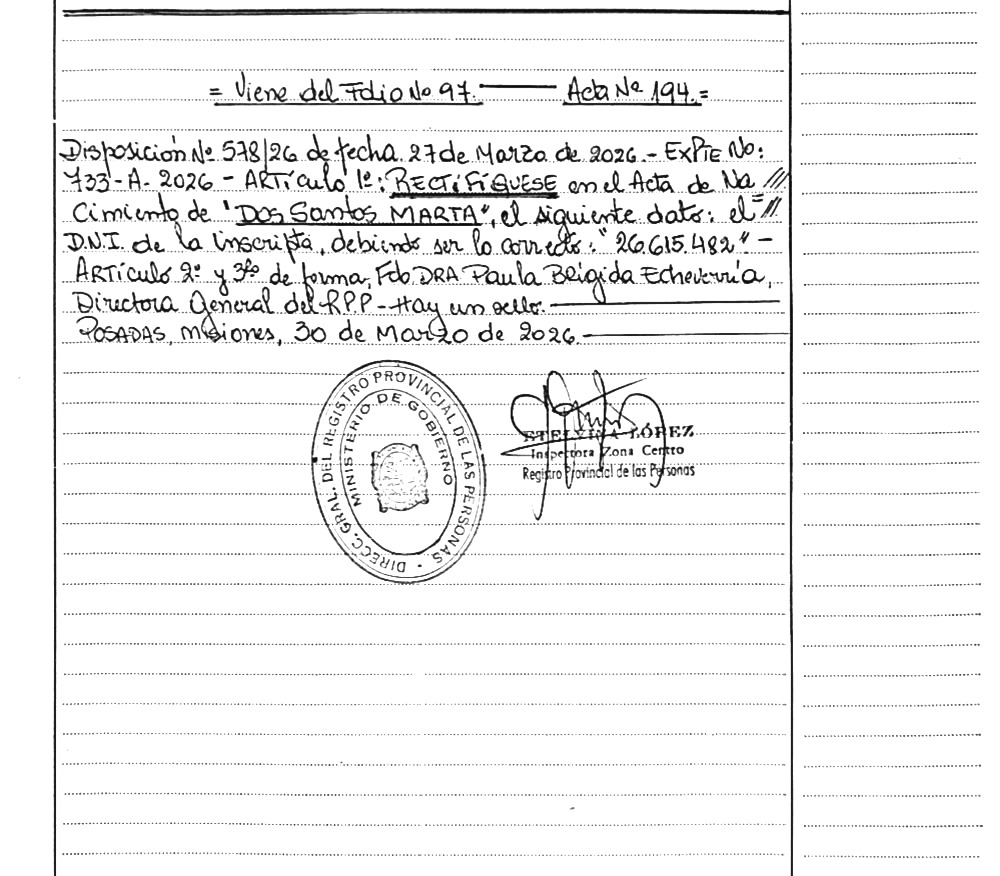 = Viene del Folio No 97. —— Acta Nº 194.=
Disposición Nº 578/26 de fecha 27 de Marzo de 2026.- ExPTE No:
733-A-2026 - ARTículo 1º: RECTiFíQUESE en el Acta de Na ///
cimiento de "DOS Santos MARTA", el siguiente dato: el = ///
D.N.I. de la inscripta, debiendo ser lo correcto: "26.615.482" -
ARTículo 2º y 3º de forma, Fdo DRA Paula Brígida Echeverría,
Directora General del R.P.P - Hay un sello. ——
POSADAS, Misiones, 30 de Marzo de 2026. ——
DIRECC. GRAL. DEL REGISTRO PROVINCIAL DE LAS PERSONAS ·
MINISTERIO DE GOBIERNO
ETELVINA LÓPEZ
Inspectora Zona Centro
Registro Provincial de las Personas